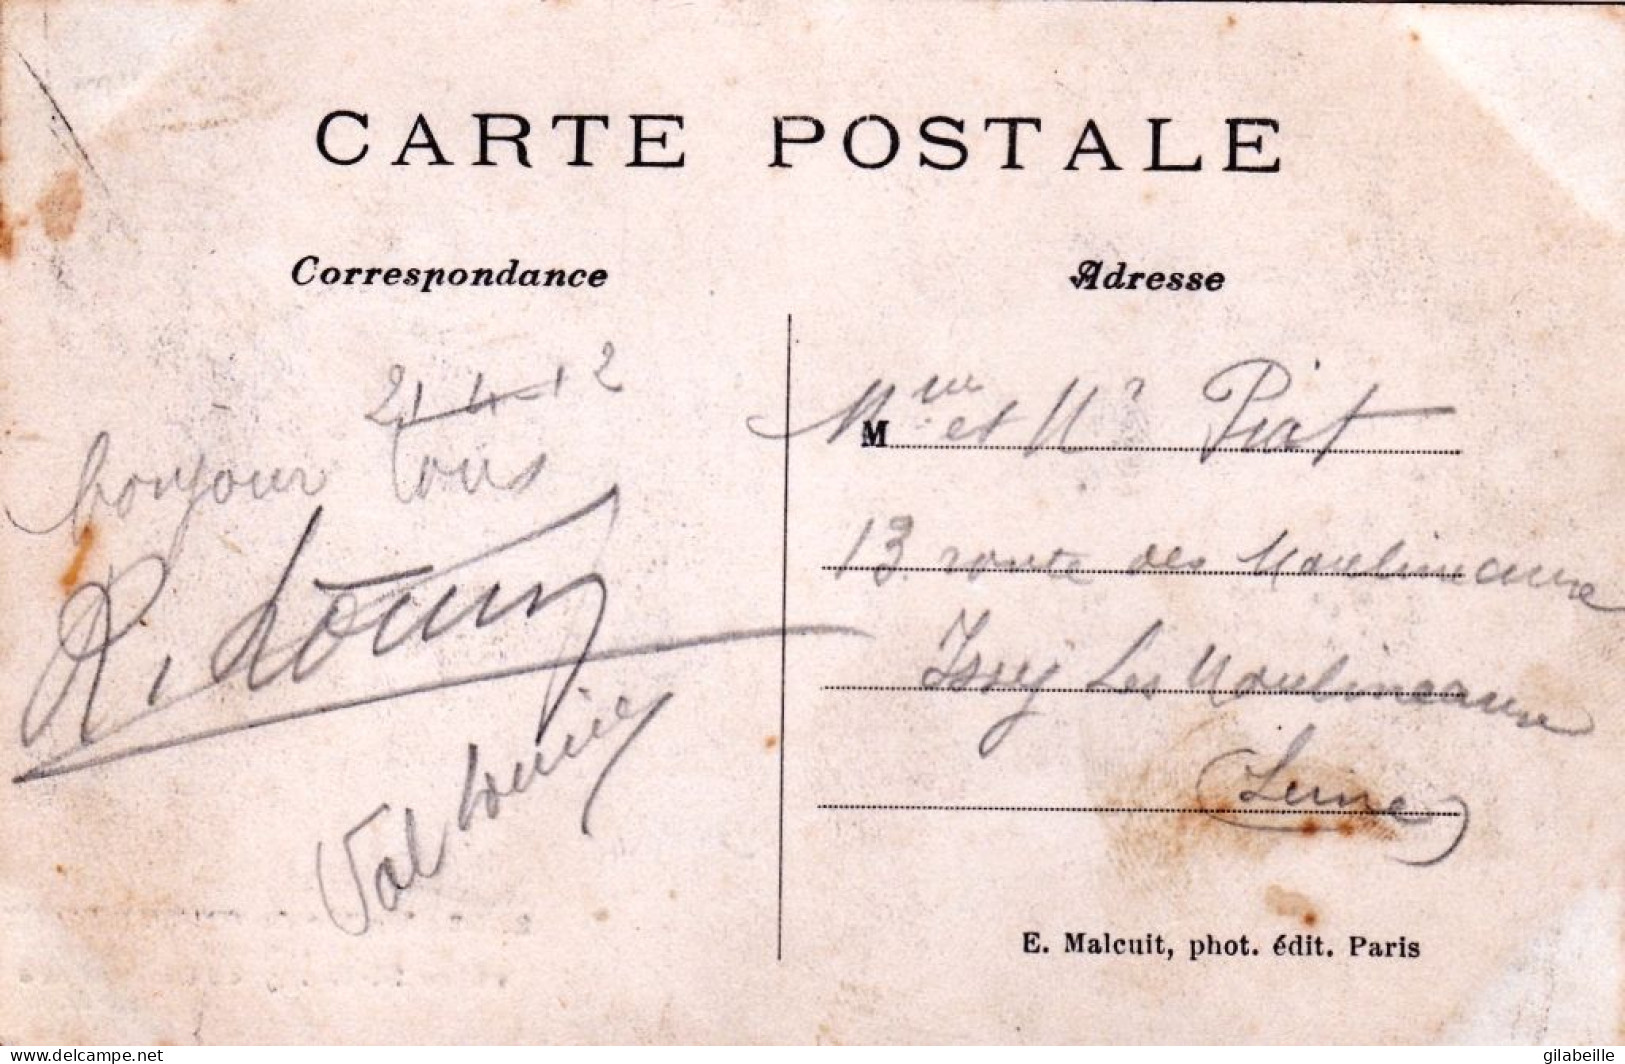 CARTE POSTALE
Correspondance
Adresse
21-4-12
bonjour tous
M
Mme et Mr Piat
13. route des Moulineaux
Issy Les Moulineaux
(Seine)
E. Malcuit, phot. édit. Paris
www.delcampe.net
gilabeille